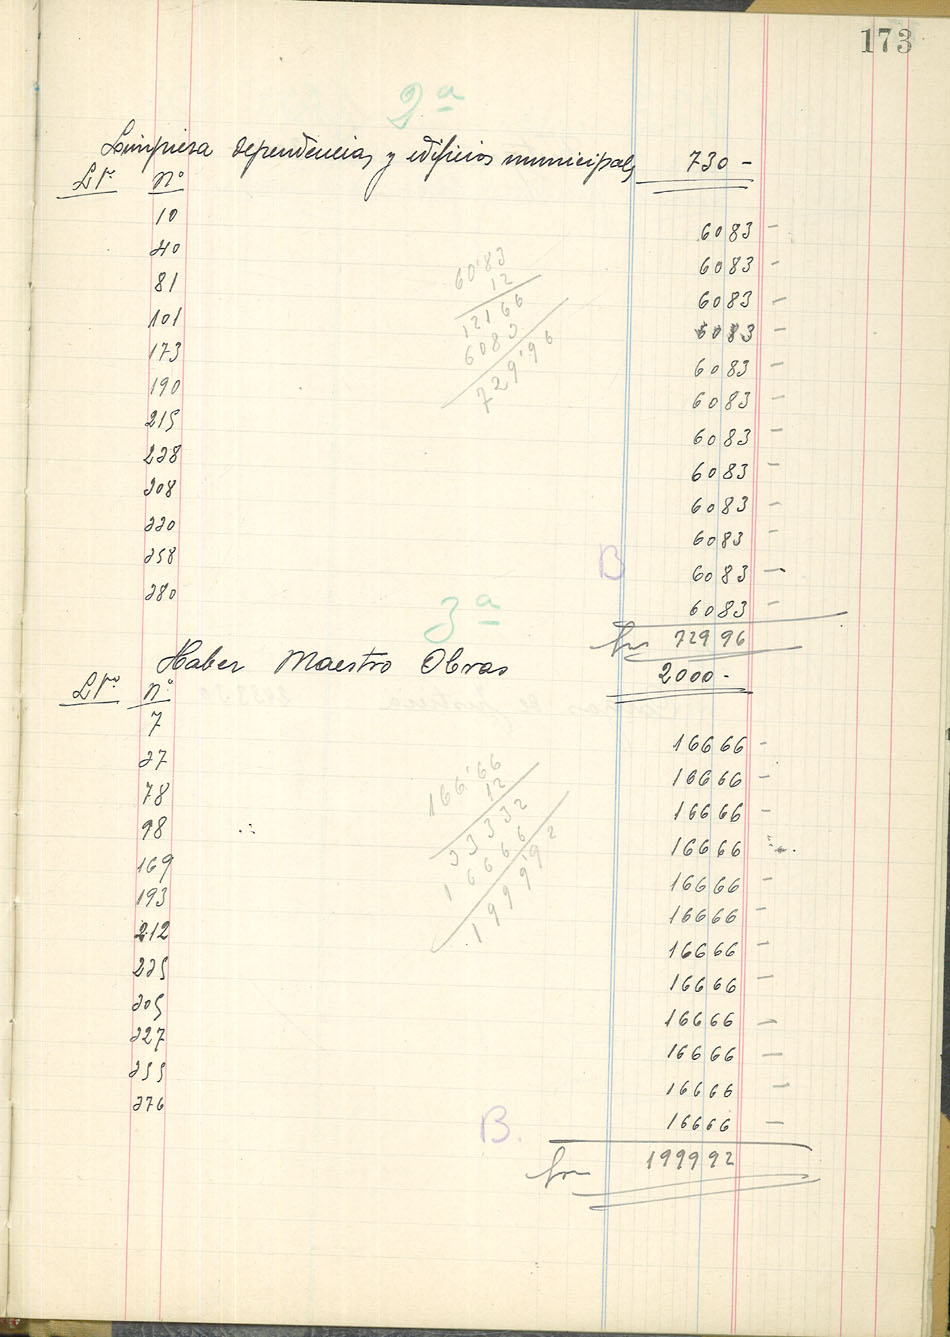 173
2ª
Limpieza dependencias y edificios municipales 730 -
Lº. nº
10 6083 -
40 6083 -
81 6083 -
101 6083 -
173 6083 -
190 6083 -
215 6083 -
228 6083 -
208 6083 -
220 6083 -
258 6083 -
280 6083 -
B
729 96
60'83
12
12166
6083
729'96
3ª
Haber Maestro Obras 2000 -
nº
7 16666 -
27 16666 -
78 16666 -
98 16666
169 16666 -
193 16666 -
212 16666 -
225 16666 -
205 16666 -
227 16666 -
255 16666 -
276 16666 -
B.
1999 92
166'66
12
33332
16666
1999'92